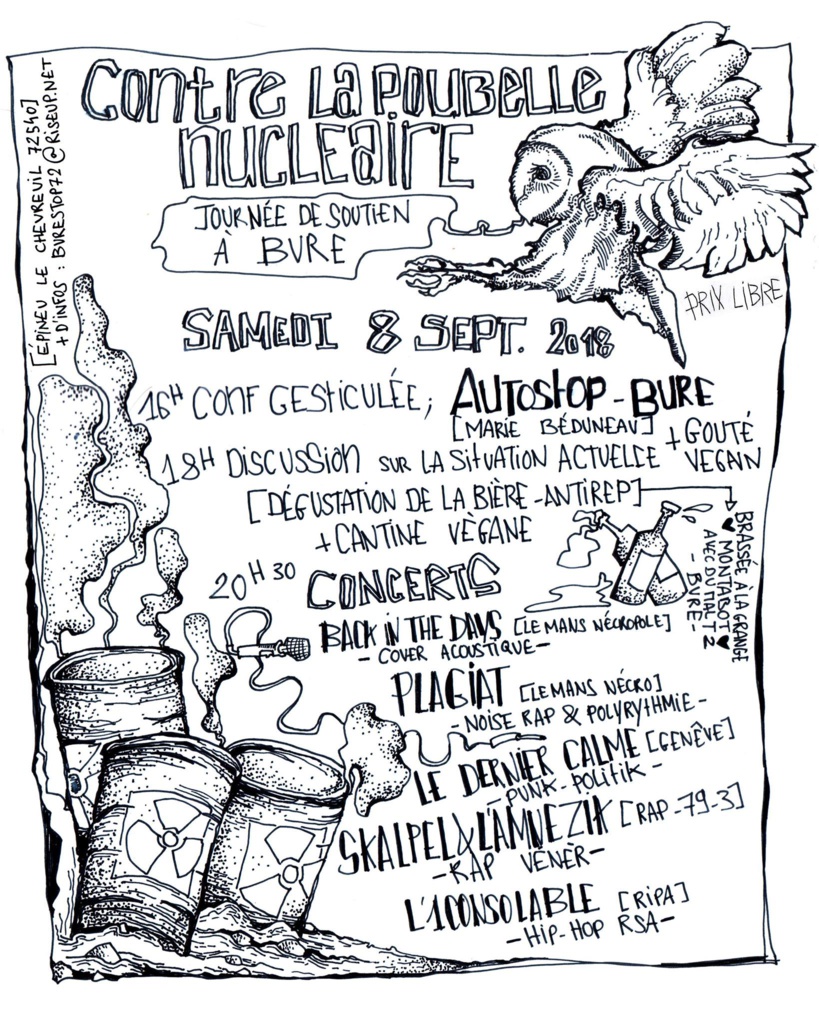 CONTRE LA POUBELLE
NUCLEAIRE
JOURNÉE DE SOUTIEN
À BURE
[ÉPINEU LE CHEVREUIL 72540]
+ D'INFOS : BURESTOP72@RISEUP.NET
PRIX LIBRE
SAMEDI 8 SEPT. 2018
16H CONF GESTICULÉE; AUTOSTOP-BURE
[MARIE BÉDUNEAU] + GOUTÉ
VEGAIN
18H DISCUSSION SUR LA SITUATION ACTUELLE
[DÉGUSTATION DE LA BIÈRE-ANTIREP]
+ CANTINE VÈGANE
BRASSÉE À LA GRANGE
♥ MONTABOT ♥
AVEC DU MALT 2
- BURE -
20H30 CONCERTS
BACK IN THE DAYS [LE MANS NÉCROPOLE]
- COVER ACOUSTIQUE -
PLAGIAT [LE MANS NÉCRO]
- NOISE RAP & POLYRYTHMIE -
LE DERNIER CALME [GENÊVE]
- PUNK-POLITIK -
SKALPEL X L'AMNEZIK [RAP-79-3]
- RAP VÉNÈR -
L'1CONSOLABLE [RIPA]
- HIP-HOP RSA -